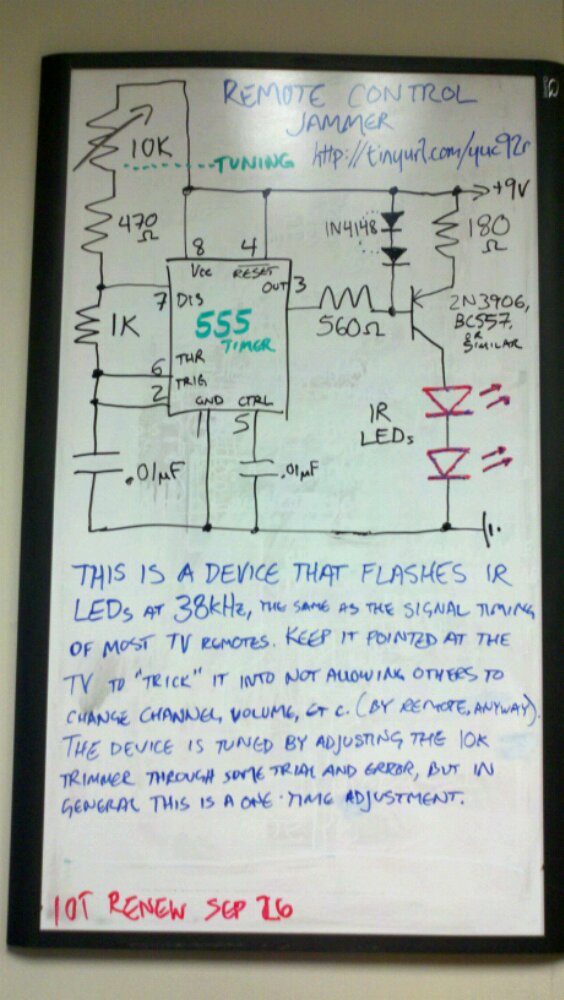 REMOTE CONTROL
JAMMER
10K
TUNING
http://tinyurl.com/yuc92r
+9V
470
Ω
1N4148
180
Ω
8
4
Vcc
RESET
OUT
3
7
DIS
1K
555
TIMER
560Ω
2N3906,
BC557,
OR
SIMILAR
6
THR
TRIG
2
GND
CTRL
1
5
IR
LEDs
.01μF
.01μF
THIS IS A DEVICE THAT FLASHES IR
LEDs AT 38kHz, THE SAME AS THE SIGNAL TIMING
OF MOST TV REMOTES. KEEP IT POINTED AT THE
TV TO "TRICK" IT INTO NOT ALLOWING OTHERS TO
CHANGE CHANNEL, VOLUME, ET C. (BY REMOTE, ANYWAY).
THE DEVICE IS TUNED BY ADJUSTING THE 10K
TRIMMER THROUGH SOME TRIAL AND ERROR, BUT IN
GENERAL THIS IS A ONE-TIME ADJUSTMENT.
IOT RENEW SEP 26